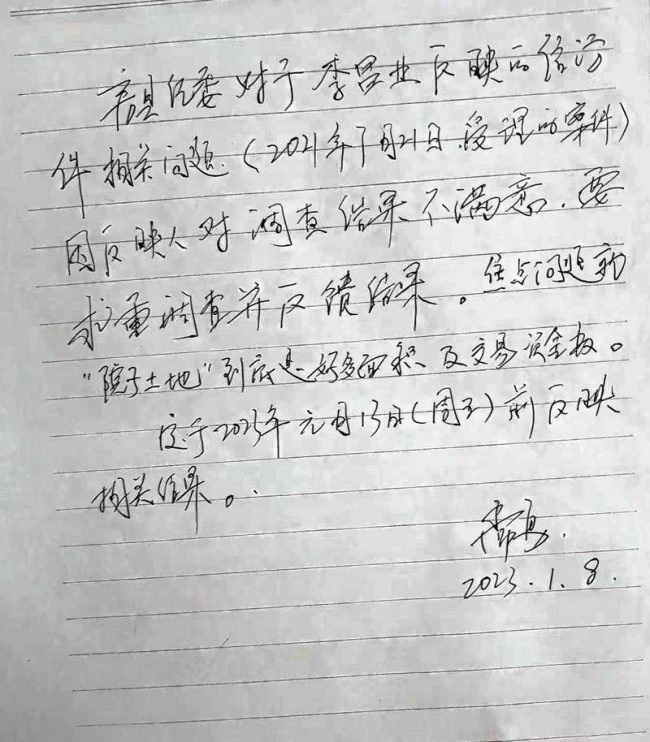 县纪委对于李昌业反映的信访
件相关问题(2021年7月21日受理的案件)
因反映人对调查结果不满意.要
求重调查并反馈结果。焦点问题就
"院子土地"到底是好多面积及交易资金。
定于2023年元月13日(周五)前反映
相关结果。
2023.1.8.